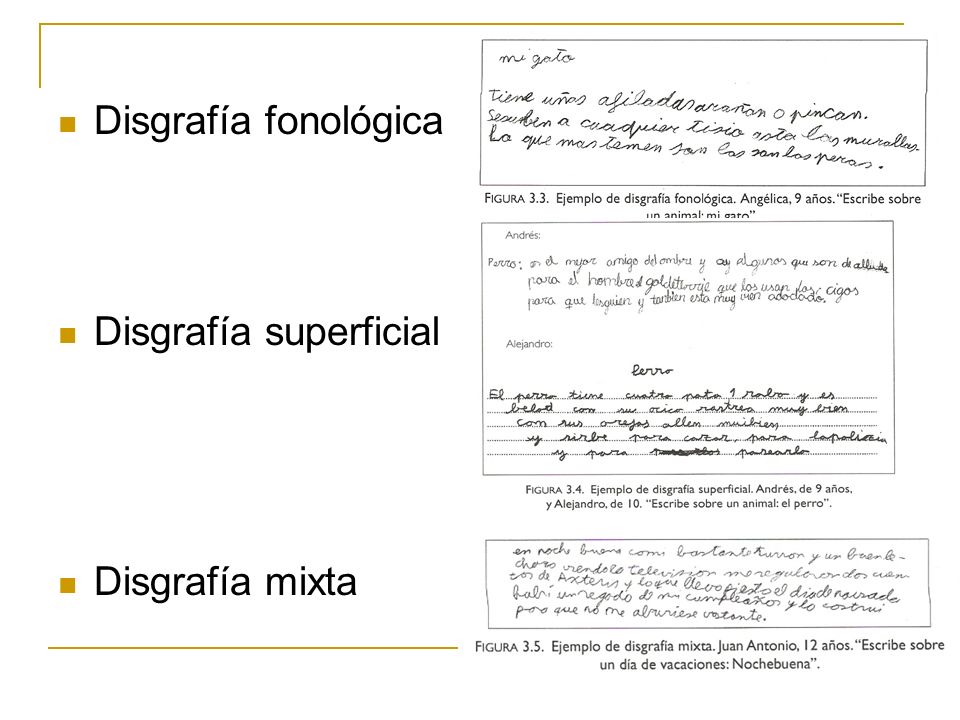 Disgrafía fonológica
mi gato
tiene uñas afiladas arañan o pincan.
Sesuben a cuaquier tisio asta las murallas.
Lo que mas temen son las son los peras.
FIGURA 3.3. Ejemplo de disgrafía fonológica. Angélica, 9 años. “Escribe sobre
un animal: mi gato”
Disgrafía superficial
Andrés:
Perro: es el mejor amigo del ombre y ay algunos que son de
para el hombre el que los usan los cigos
para que lesguien y tanbien esta muy bien adodado.
Alejandro:
Perro
El perro tiene cuatro pata 1 rabo y es
belod con su ocico rastrea muy bien
con sus orejas allen muibien
y sirbe para cazar, para lapolicia
y para pasearlo
FIGURA 3.4. Ejemplo de disgrafía superficial. Andrés, de 9 años,
y Alejandro, de 10. “Escribe sobre un animal: el perro”.
Disgrafía mixta
en noche buena comi bastante turron y un buen le-
viendo la television me regularon dos cuen-
tos de Axteris y loque llevo el dia de
habri un regado de mi cumpleaños y lo costrui
para que no me aburiese vastante.
FIGURA 3.5. Ejemplo de disgrafía mixta. Juan Antonio, 12 años. “Escribe sobre
un día de vacaciones: Nochebuena”.